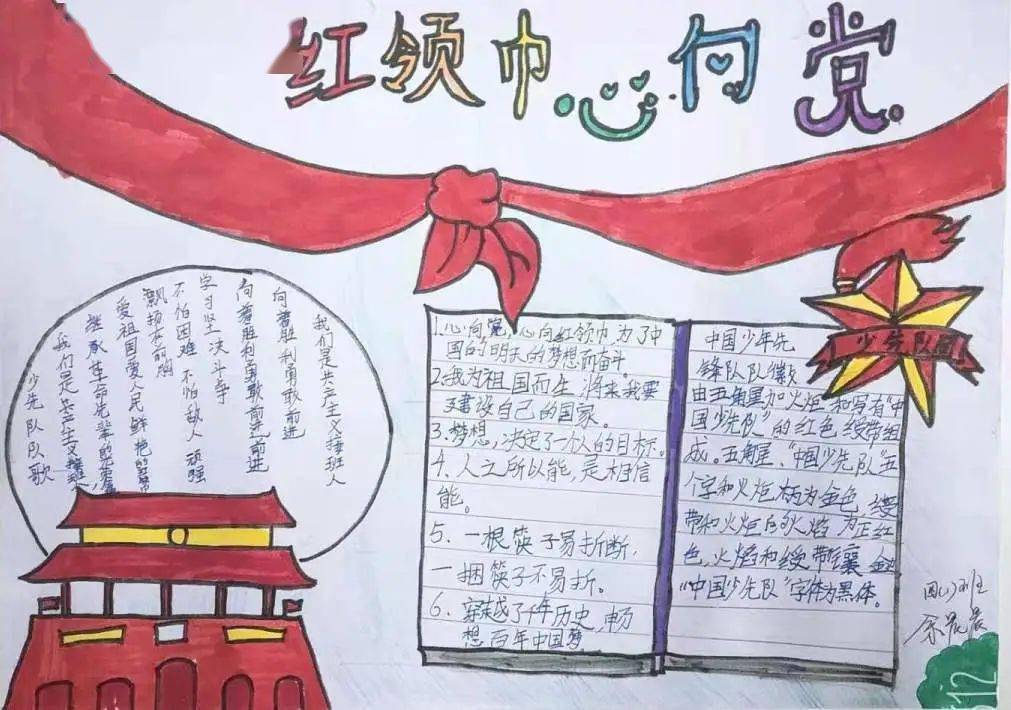 红领巾心向党
少先队队歌
我们是共产主义接班人
继承革命先辈的光荣
爱祖国爱人民鲜艳的
飘扬在前胸
不怕困难 不怕敌人 顽强
学习坚决斗争
向着胜利勇敢前进前进
向着胜利勇敢前进
我们是共产主义接班人
1.心向党,心向红领巾,为了中
国的明天的梦想而奋斗。
2.我为祖国而生,将来我要
建设自己的国家。
3.梦想,决定了一个人的目标。
4.人之所以能,是相信
能。
5、一根筷子易折断,
一捆筷子不易折。
6、穿越了千年历史,畅
想百年中国梦
少先队
中国少年先
锋队队徽
由五角星加火炬和写有“中
国少先队”的红色绶带组
成。五角星、“中国少先队”五
个字和火炬柄为金色,绶
带和火炬的火焰为正红
色,火焰和绶带镶金
“中国少先队”字体为黑体。
四
晨晨
12